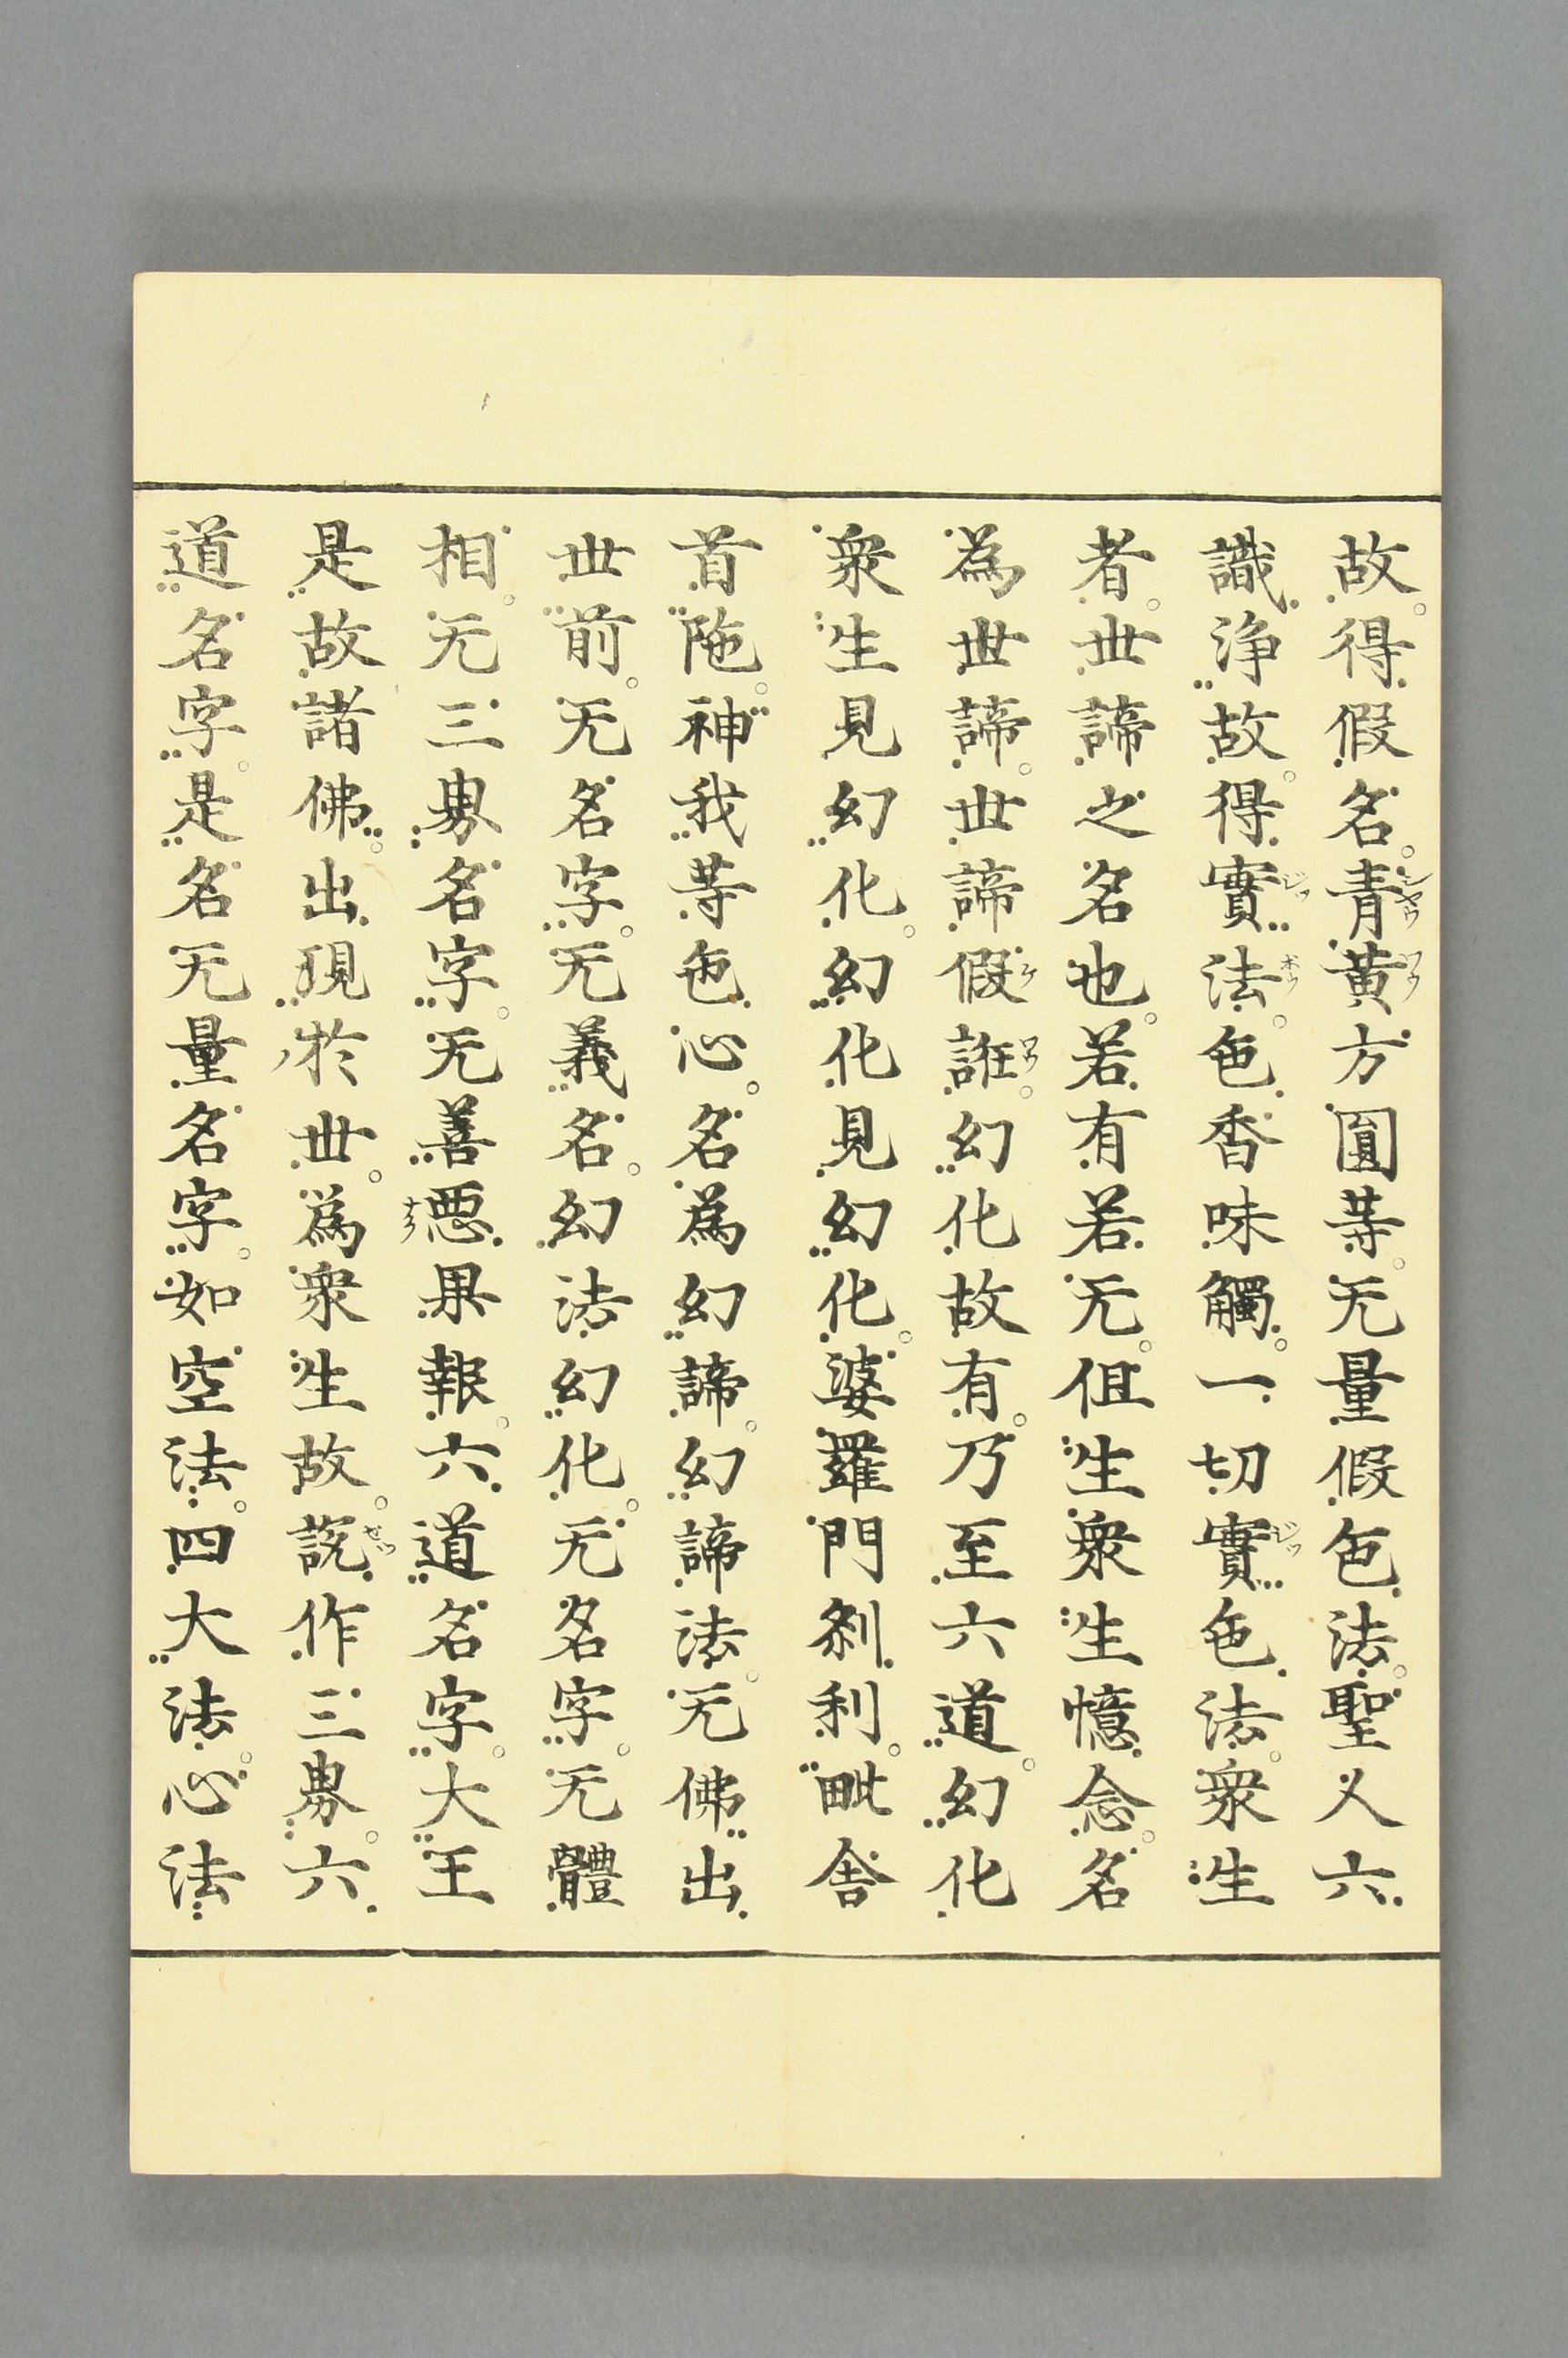 故得假名青黄方圓等无量假色法聖人六
識浄故得實法色香味觸一切實色法衆生
者世諦之名也若有若无但生衆生憶念名
為世諦世諦假誑幻化故有乃至六道幻化
衆生見幻化幻化見幻化婆羅門刹利毗舍
首陁神我等色心名為幻諦幻諦法无佛出
世前无名字无義名幻法幻化无名字无體
相无三界名字无善惡果報六道名字大王
是故諸佛出現於世為衆生故説作三界六
道名字是名无量名字如空法四大法心法